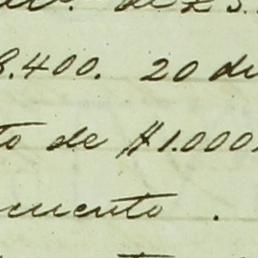 de £ 3.
8.400. 20 di
to de $1.000
cuento .